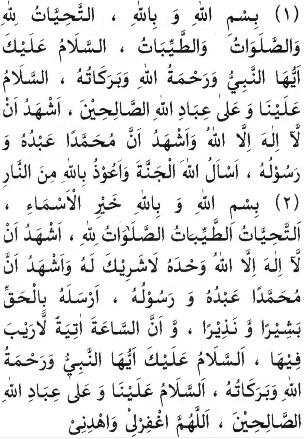 (١) بِسْمِ اللهِ وَ بِاللهِ ، اَلتَّحِيَّاتُ لِلّٰهِ
وَالصَّلَوَاتُ وَالطَّيِّبَاتُ ، اَلسَّلَامُ عَلَيْكَ
اَيُّهَا النَّبِيُّ وَرَحْمَةُ اللهِ وَبَرَكَاتُهُ ، اَلسَّلَامُ
عَلَيْنَا وَ عَلىٰ عِبَادِ اللهِ الصَّالِحِيْنَ ، اَشْهَدُ اَنْ
لَآ اِلٰهَ اِلَّا اللهُ وَاَشْهَدُ اَنَّ مُحَمَّدًا عَبْدُهُ وَ
رَسُوْلُهُ ، اَسْاَلُ اللهَ الْجَنَّةَ وَاَعُوْذُ بِاللهِ مِنَ النَّارِ
(٢) بِسْمِ اللهِ وَ بِاللهِ خَيْرِ الْاَسْمَاءِ ،
اَلتَّحِيَّاتُ اَلطَّيِّبَاتُ الصَّلَوَاتُ لِلّٰهِ ، اَشْهَدُ اَنْ
لَآ اِلٰهَ اِلَّا اللهُ وَحْدَهُ لَاشَرِيْكَ لَهُ وَاَشْهَدُ اَنَّ
مُحَمَّدًا عَبْدُهُ وَ رَسُوْلُهُ ، اَرْسَلَهُ بِالْحَقِّ
بَشِيْرًا وَّ نَذِيْرًا ، وَ اَنَّ السَّاعَةَ اٰتِيَةٌ لَّارَيْبَ
فِيْهَا ، اَلسَّلَامُ عَلَيْكَ اَيُّهَا النَّبِيُّ وَرَحْمَةُ
اللهِ وَبَرَكَاتُهُ ، اَلسَّلَامُ عَلَيْنَا وَ عَلىٰ عِبَادِ اللهِ
الصَّالِحِيْنَ ، اَللّٰهُمَّ اغْفِرْلِيْ وَاهْدِنِيْ